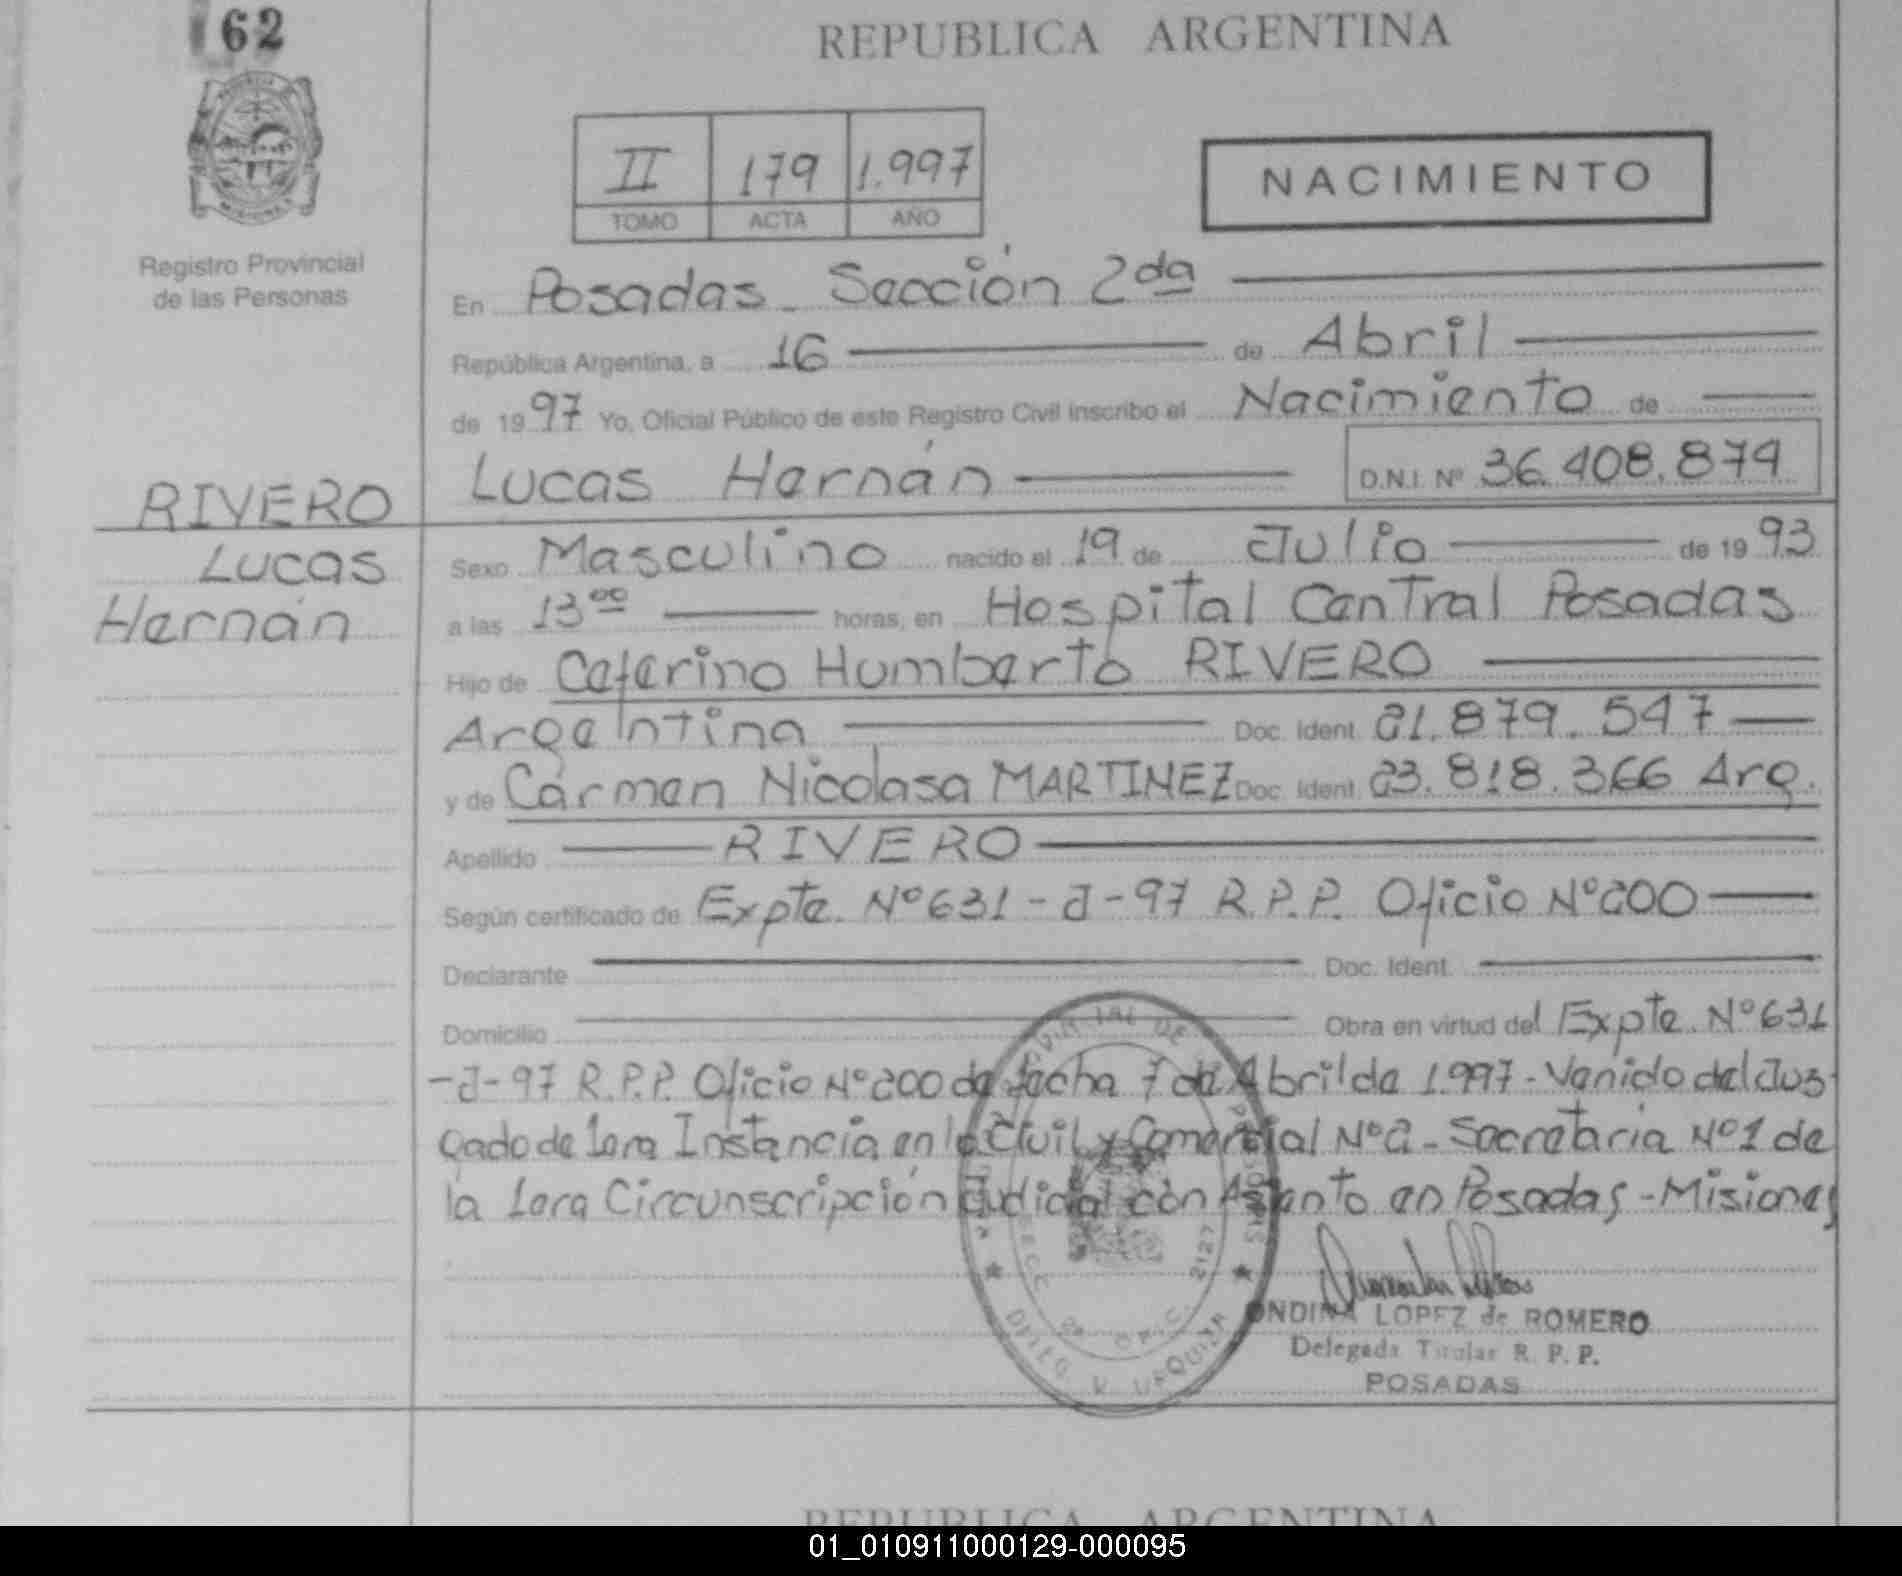 62
REPUBLICA ARGENTINA
II 179 1.997
TOMO ACTA AÑO
NACIMIENTO
Registro Provincial
de las Personas
En Posadas - Sección 2da
República Argentina, a 16 de Abril
de 1997 Yo, Oficial Público de este Registro Civil inscribo el Nacimiento de
Lucas Hernán D.N.I. Nº 36.408.874
RIVERO
Lucas
Hernán
Sexo Masculino nacido el 19 de Julio de 1993
a las 13 00 horas, en Hospital Central Posadas
Hijo de Ceferino Humberto RIVERO
Argentina Doc. Ident. 21.879.547
y de Cármen Nicolasa MARTINEZ Doc. Ident. 23.818.366 Arg.
Apellido RIVERO
Según certificado de Expte. Nº 631-J-97 R.P.P. Oficio Nº 200
Declarante Doc. Ident.
Domicilio Obra en virtud del Expte. Nº 631
-J-97 R.P.P. Oficio Nº 200 de fecha 7 de Abril de 1.997 - Venido del Juz-
gado de 1era Instancia en lo Civil y Comercial Nº 2 - Secretaría Nº 1 de
la 1era Circunscripción Judicial con Asiento en Posadas - Misiones
ONDINA LOPEZ de ROMERO
Delegada Titular R. P. P.
POSADAS
DELEG. V. URQUIZA
2127
REPUBLICA ARGENTINA
01_010911000129-000095